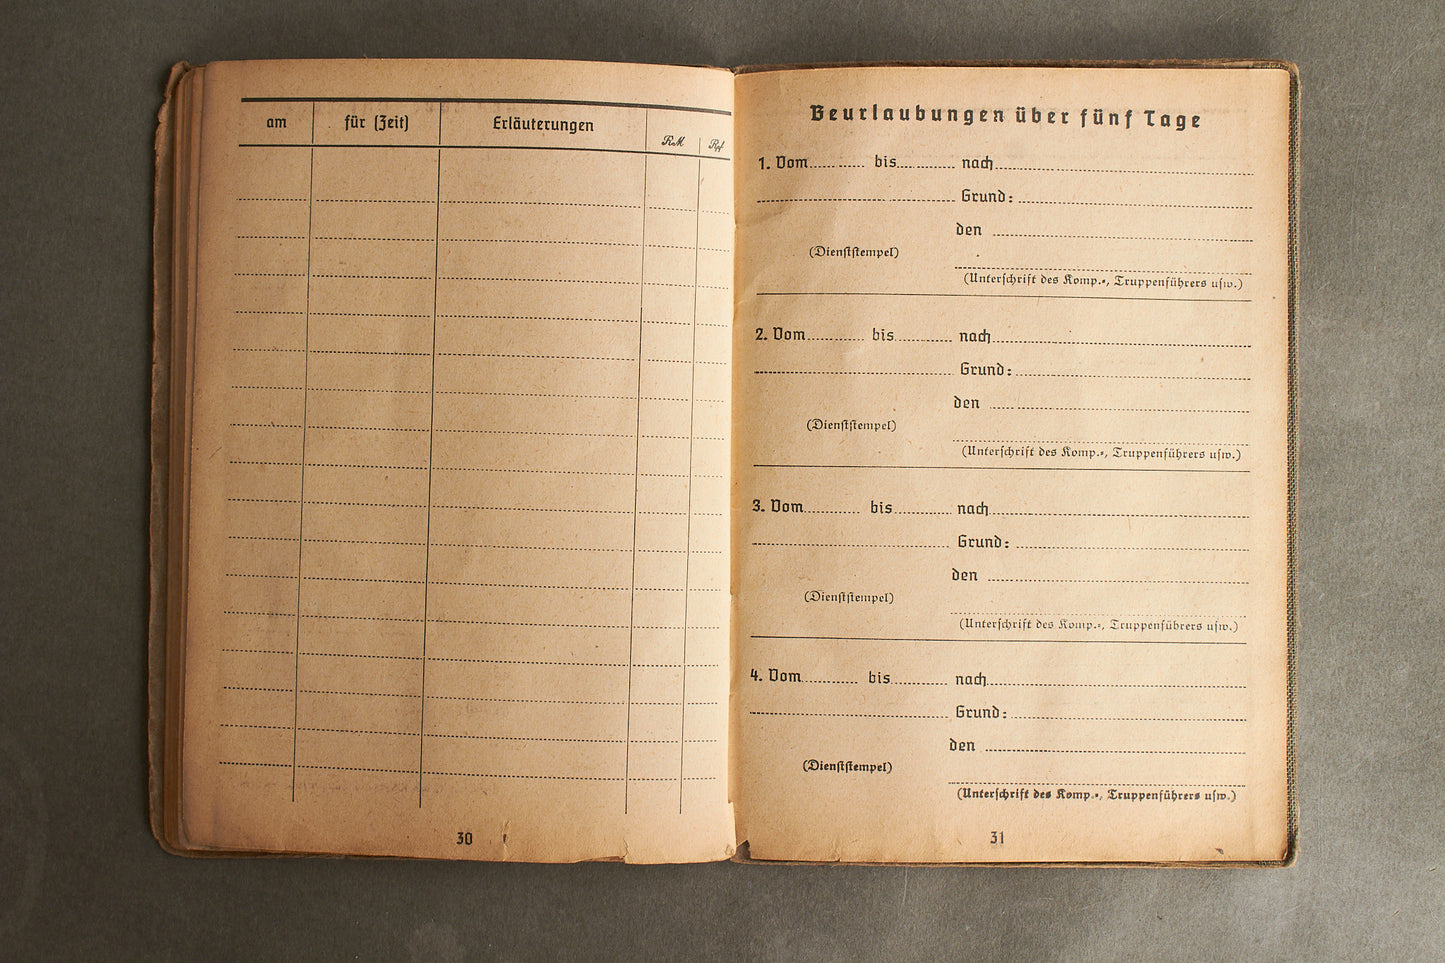 am für (Zeit) Erläuterungen
RM Rpf
30
Beurlaubungen über fünf Tage
1. Vom bis nach
Grund:
den
(Dienſtſtempel)
(Unterſchrift des Komp.-, Truppenführers uſw.)
2. Vom bis nach
Grund:
den
(Dienſtſtempel)
(Unterſchrift des Komp.-, Truppenführers uſw.)
3. Vom bis nach
Grund:
den
(Dienſtſtempel)
(Unterſchrift des Komp.-, Truppenführers uſw.)
4. Vom bis nach
Grund:
den
(Dienſtſtempel)
(Unterſchrift des Komp.-, Truppenführers uſw.)
31